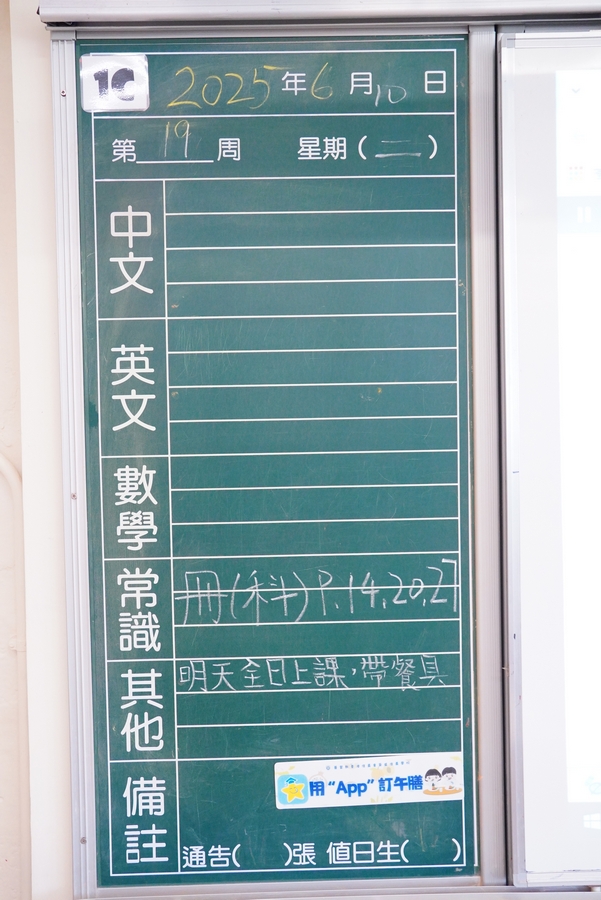 1C 2025年6月10日
第19周 星期(二)
中文
英文
數學
常識 冊(科) P.14,20,27
其他 明天全日上課,帶餐具
備註
用“App”訂午膳
通告( )張 值日生( )